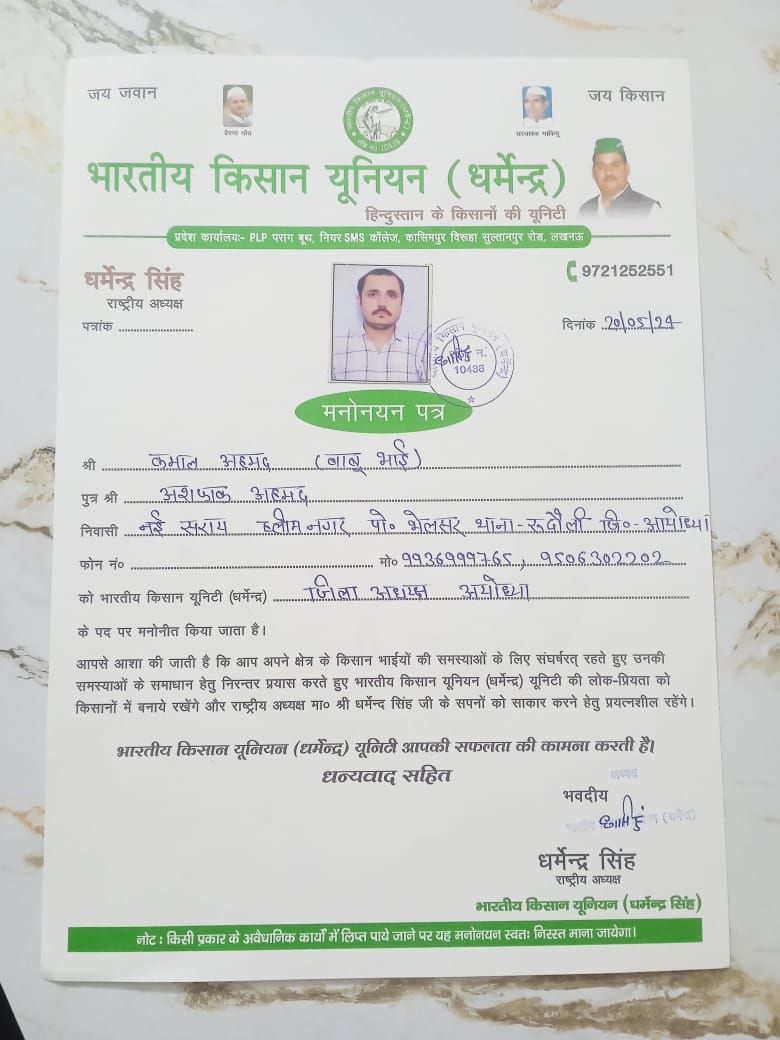 जय जवान
जय किसान
प्रेरणा श्रोत
संस्थापक भाकियू
भारतीय किसान यूनियन (धर्मेन्द्र)
रजि नं. 10438
भारतीय किसान यूनियन (धर्मेन्द्र)
हिन्दुस्तान के किसानों की यूनिटी
प्रदेश कार्यालयः- PLP पराग बूथ, नियर SMS कॉलेज, कासिमपुर विरूहा सुल्तानपुर रोड, लखनऊ
धर्मेन्द्र सिंह
राष्ट्रीय अध्यक्ष
9721252551
पत्रांक
दिनांक 20/05/24
10438
मनोनयन पत्र
श्री कमाल अहमद (बाबू भाई)
पुत्र श्री अशफाक अहमद
निवासी नई सराय हलीम नगर पो॰ भेलसर थाना-रूदौली जि॰-अयोध्या
फोन नं॰ मो॰ 9936999765, 9506302202
को भारतीय किसान यूनिटी (धर्मेन्द्र) जिला अध्यक्ष अयोध्या
के पद पर मनोनीत किया जाता है।
आपसे आशा की जाती है कि आप अपने क्षेत्र के किसान भाईयों की समस्याओं के लिए संघर्षरत् रहते हुए उनकी
समस्याओं के समाधान हेतु निरन्तर प्रयास करते हुए भारतीय किसान यूनियन (धर्मेन्द्र) यूनिटी की लोक-प्रियता को
किसानों में बनाये रखेंगे और राष्ट्रीय अध्यक्ष मा॰ श्री धर्मेन्द सिंह जी के सपनों को साकार करने हेतु प्रयत्नशील रहेंगे।
भारतीय किसान यूनियन (धर्मेन्द्र) यूनिटी आपकी सफलता की कामना करती है।
धन्यवाद सहित
अध्यक्ष
भवदीय
धर्मेन्द्र सिंह
राष्ट्रीय अध्यक्ष
भारतीय किसान यूनियन (धर्मेन्द्र सिंह)
नोट : किसी प्रकार के अवैधानिक कार्यों में लिप्त पाये जाने पर यह मनोनयन स्वतः निरस्त माना जायेगा।